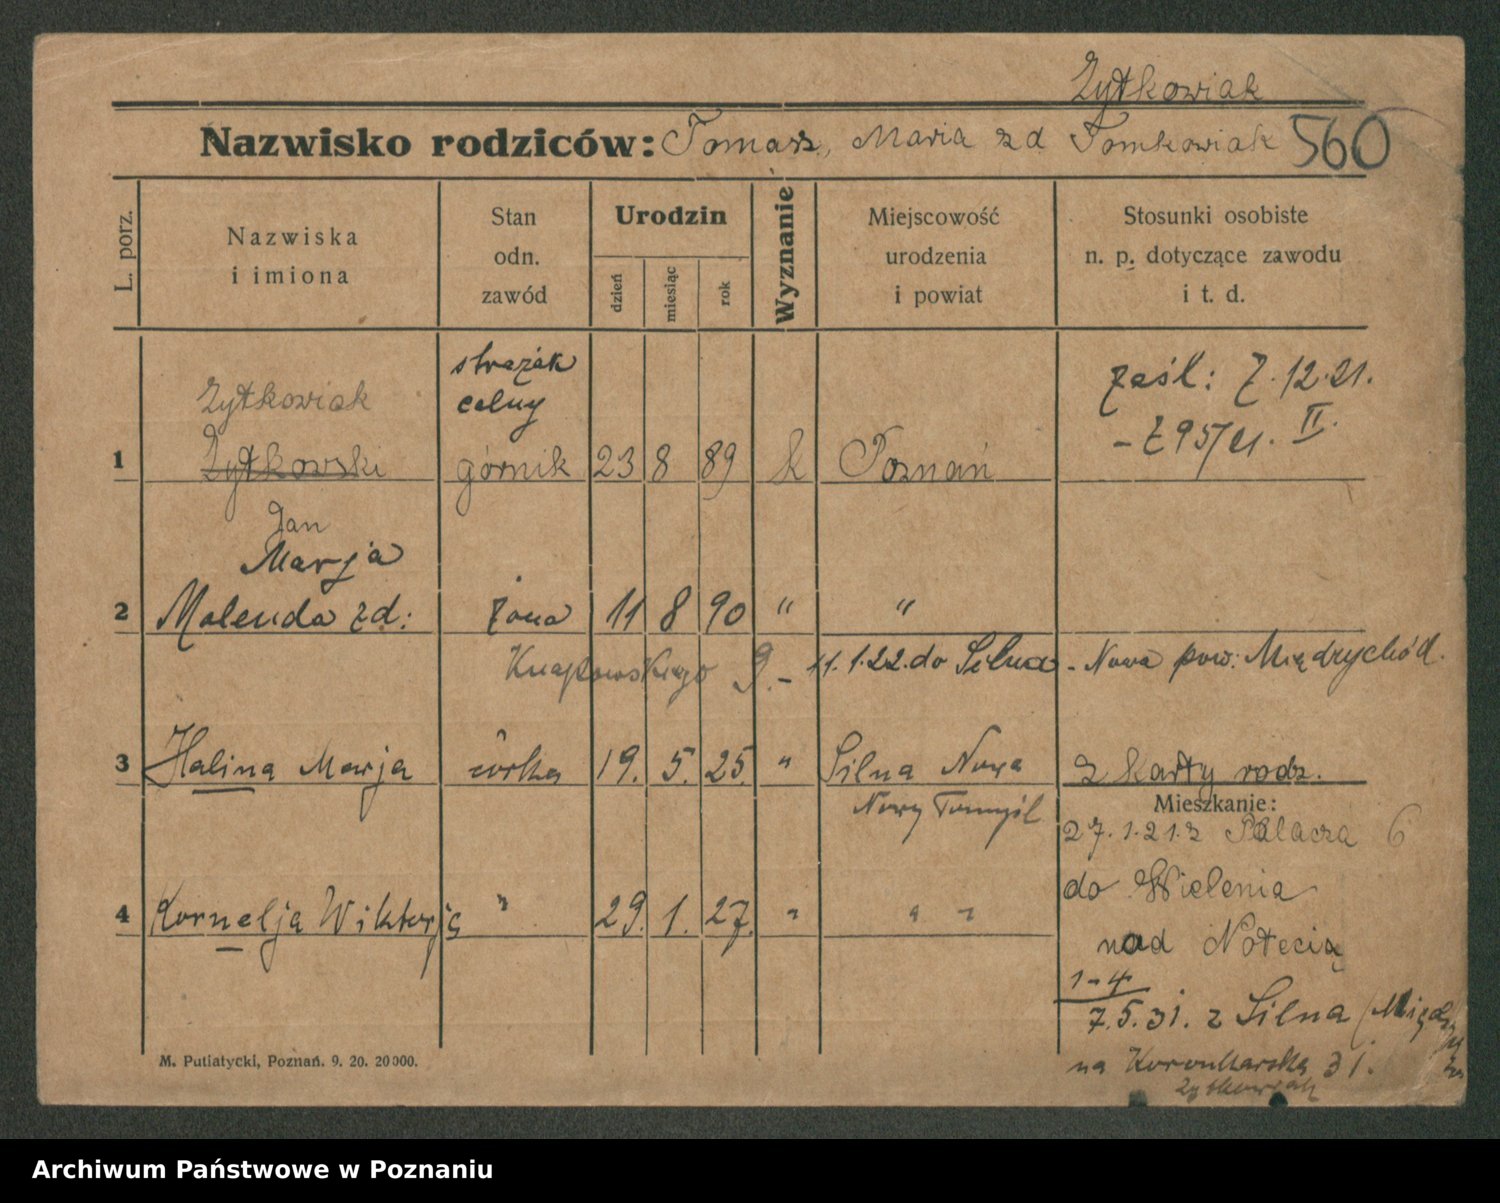 Żytkowiak
Nazwisko rodziców: Tomasz, Maria zd Tomkowiak 560
L. porz.
Nazwiska
i imiona
Stan
odn.
zawód
Urodzin
dzień
miesiąc
rok
Wyznanie
Miejscowość
urodzenia
i powiat
Stosunki osobiste
n. p. dotyczące zawodu
i t. d.
strażak
celny
Żytkowiak
zaśl: 7.12.21.
1 Żytkowski górnik 23 8 89 k Poznań
II.
Jan
Marja
2 Molenda zd: żona 11 8 90 " "
11.1.22. do Silna - Nowa pow: Międzychód.
3 Halina Marja córka 19. 5. 25. " Silna Nowa z karty rodz.
Nowy Tomyśl
Mieszkanie:
27.1.21. z Palacza 6
do Wielenia
4 Kornelja Wiktorja " 29. 1. 27. " " "
nad Notecią
1-4
7.5.31. z Silna
na 31.
Żytkowiak
M. Putiatycki, Poznań. 9. 20. 20000.
Archiwum Państwowe w Poznaniu